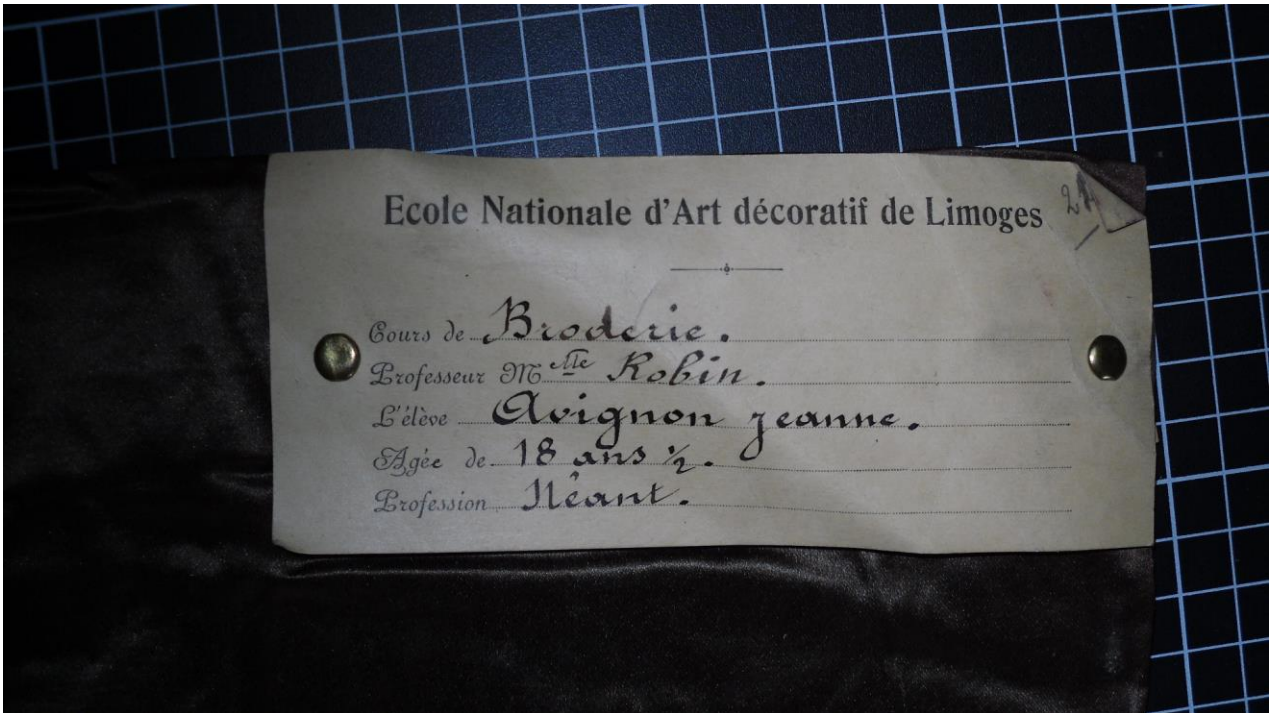 Ecole Nationale d'Art décoratif de Limoges
Cours de Broderie.
Professeur Mlle Robin.
L'élève Avignon Jeanne.
Agée de 18 ans ½.
Profession Néant.